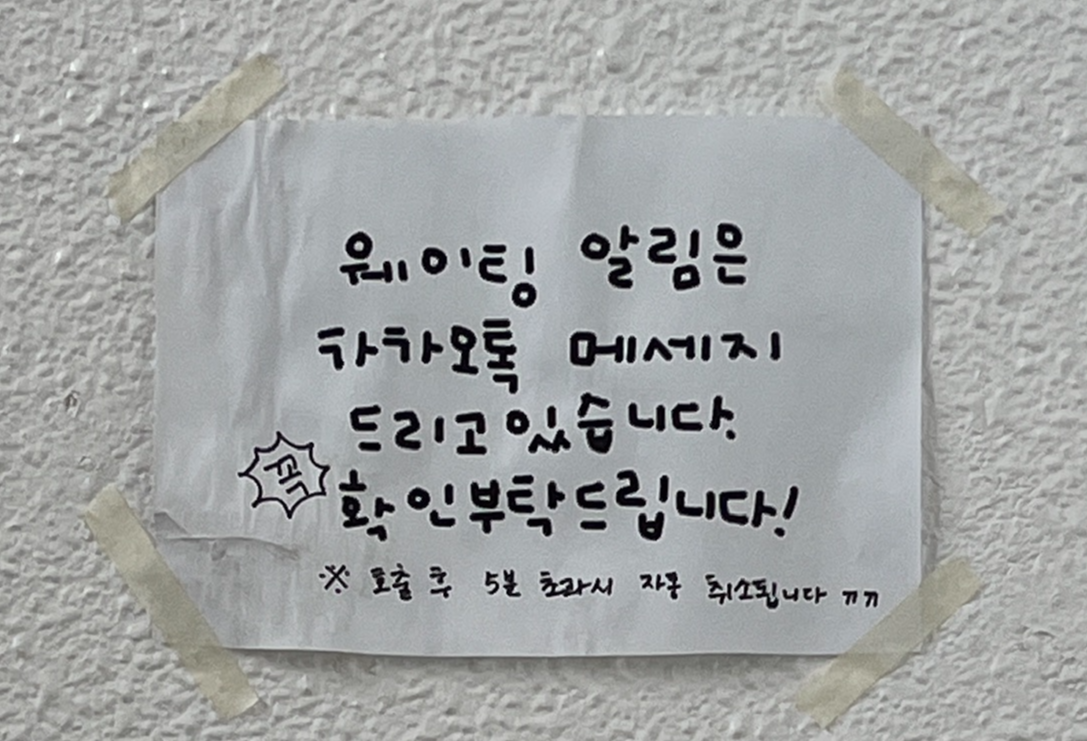 웨이팅 알림은
카카오톡 메세지
드리고있습니다.
꼭 확인부탁드립니다!
※ 호출 후 5분 초과시 자동 취소됩니다 ㅠㅠ